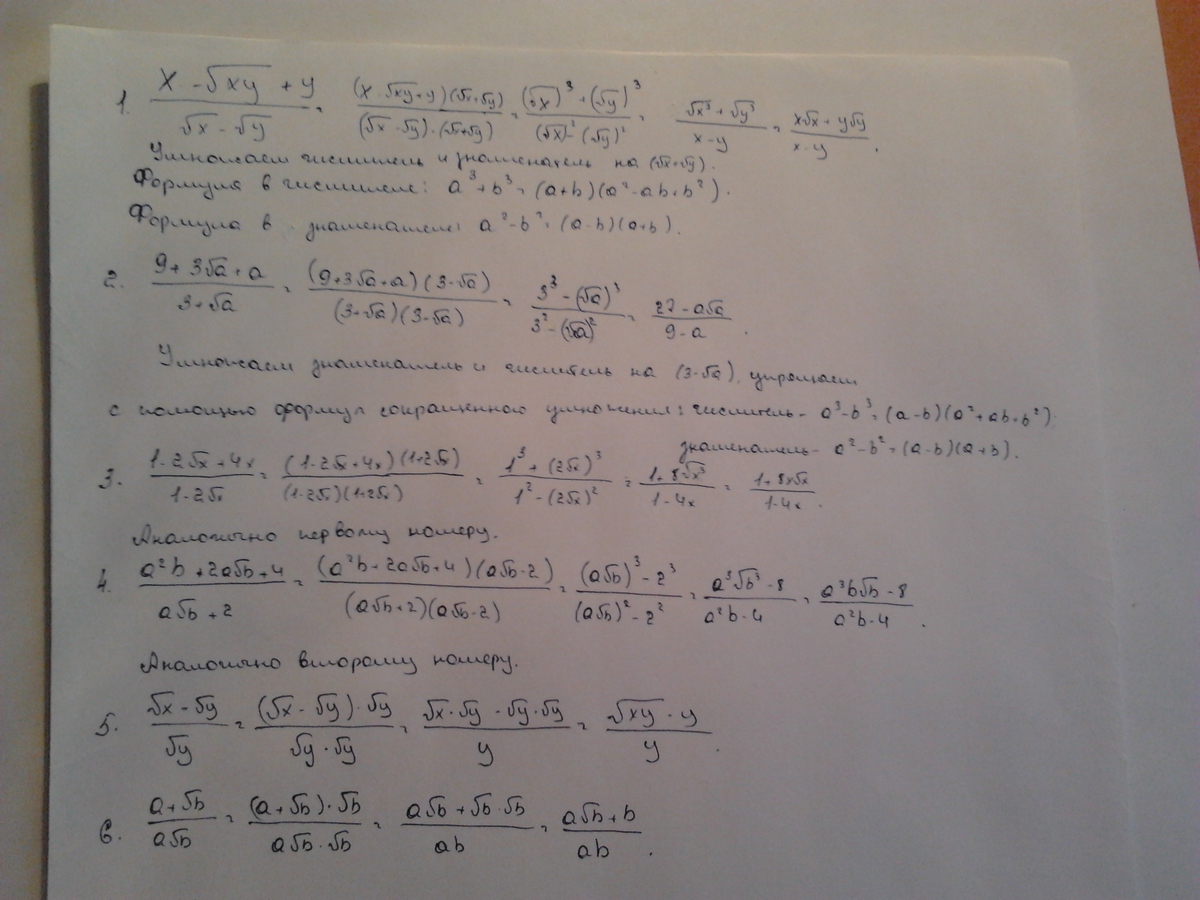 1. (x - √xy + y)/(√x - √y) = ((x - √xy + y)(√x + √y))/((√x - √y)·(√x + √y)) = ((√x)³ + (√y)³)/((√x)² - (√y)²) = (√x³ + √y³)/(x - y) = (x√x + y√y)/(x - y).
Умножаем числитель и знаменатель на (√x+√y).
Формула в числителе: a³+b³ = (a+b)(a²-ab+b²).
Формула в знаменателе: a²-b² = (a-b)(a+b).
2. (9 + 3√a + a)/(3 + √a) = ((9+3√a+a)(3-√a))/((3+√a)(3-√a)) = (3³ - (√a)³)/(3² - (√a)²) = (27 - a√a)/(9 - a).
Умножаем знаменатель и числитель на (3-√a), упрощаем
с помощью формул сокращенного умножения: числитель - a³-b³ = (a-b)(a²+ab+b²)
знаменатель - a²-b² = (a-b)(a+b).
3. (1-2√x+4x)/(1-2√x) = ((1-2√x+4x)(1+2√x))/((1-2√x)(1+2√x)) = (1³ + (2√x)³)/(1² - (2√x)²) = (1+8√x³)/(1-4x) = (1+8x√x)/(1-4x).
Аналогично первому номеру.
4. (a²b + 2a√b + 4)/(a√b + 2) = ((a²b + 2a√b + 4)(a√b - 2))/((a√b+2)(a√b-2)) = ((a√b)³ - 2³)/((a√b)² - 2²) = (a³√b³ - 8)/(a²b - 4) = (a³b√b - 8)/(a²b - 4).
Аналогично второму номеру.
5. (√x - √y)/√y = ((√x - √y)·√y)/(√y·√y) = (√x·√y - √y·√y)/y = (√xy - y)/y.
6. (a+√b)/(a√b) = ((a+√b)·√b)/(a√b·√b) = (a√b + √b·√b)/(ab) = (a√b + b)/(ab).